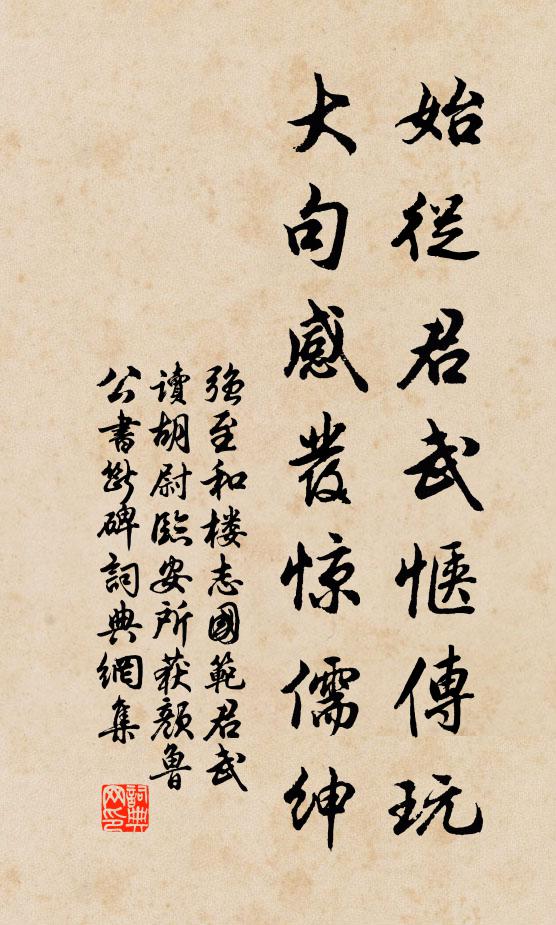 始從君武愜傳玩
大句感發惊儒紳
强至和楼志國範君武
讀胡尉臨安所获顏魯
公書斷碑詞典網集
詞典网印